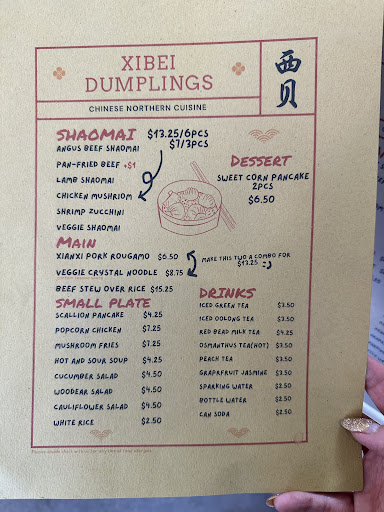 XIBEI
DUMPLINGS
CHINESE NORTHERN CUISINE
西
贝
SHAOMAI $13.25/6PCS
$7/3PCS
ANGUS BEEF SHAOMAI
PAN-FRIED BEEF +$1
LAMB SHAOMAI
CHICKEN MUSHRIOM
SHRIMP ZUCCHINI
VEGGIE SHAOMAI
DESSERT
SWEET CORN PANCAKE
2PCS
$6.50
MAIN
XIANXI PORK ROUGAMO $6.50
VEGGIE CRYSTAL NOODLE $8.75
MAKE THIS TWO A COMBO FOR
$13.25 :)
BEEF STEW OVER RICE $15.25
SMALL PLATE
SCALLION PANCAKE $4.25
POPCORN CHICKEN $7.25
MUSHROOM FRIES $7.25
HOT AND SOUR SOUP $4.25
CUCUMBER SALAD $4.50
WOODEAR SALAD $4.50
CAULIFLOWER SALAD $4.50
WHITE RICE $2.50
DRINKS
ICED GREEN TEA $3.50
ICED OOLONG TEA $3.50
RED BEAD MILK TEA $4.25
OSMANTHUS TEA(HOT) $3.50
PEACH TEA $3.50
GRAPRFRUIT JASMINE $3.50
SPARKING WATER $2.50
BOTTLE WATER $2.50
CAN SODA $2.50